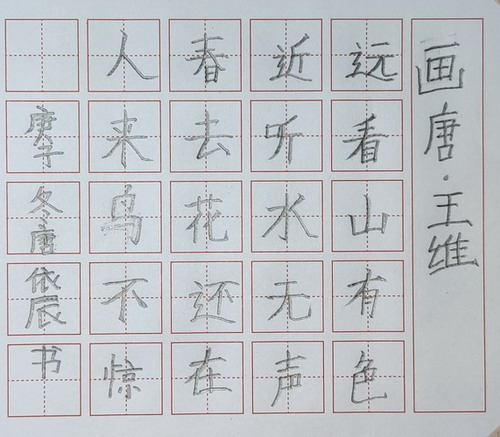 画唐·王维
远看山有色
近听水无声
春去花还在
人来鸟不惊
庚子冬唐依辰书